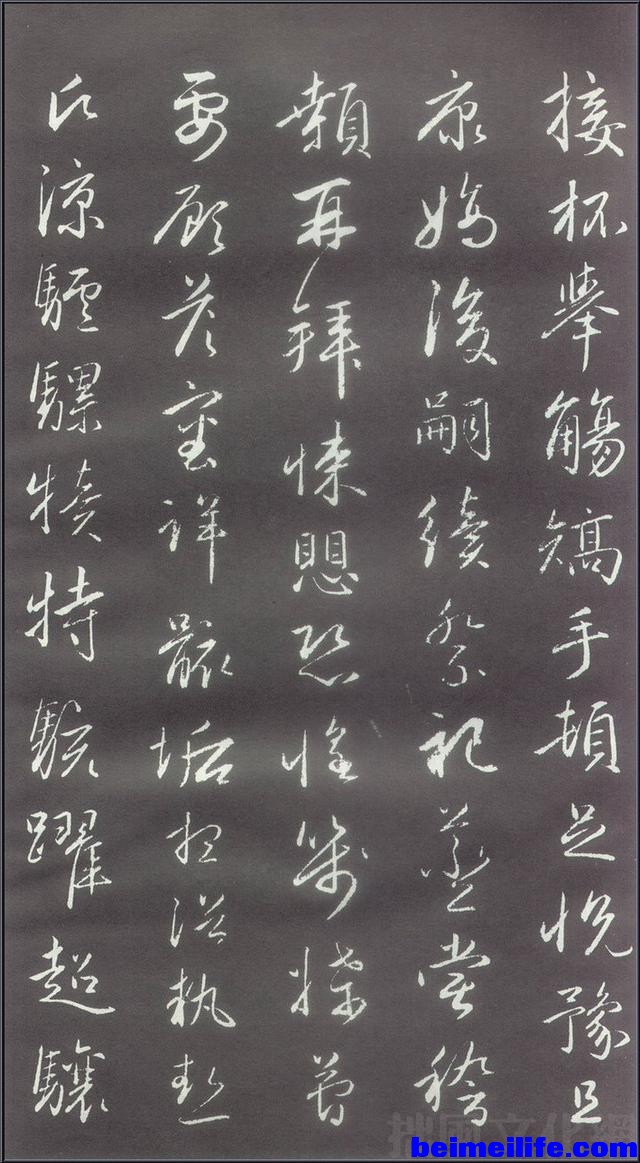 接杯舉觴矯手頓足悅豫且
康嫡後嗣續祭祀蒸嘗稽
顙再拜悚懼恐惶箋牒簡
要顧答審詳骸垢想浴執熱
願涼驢騾犢特駭躍超驤
拙風文化網
beimeilife.com